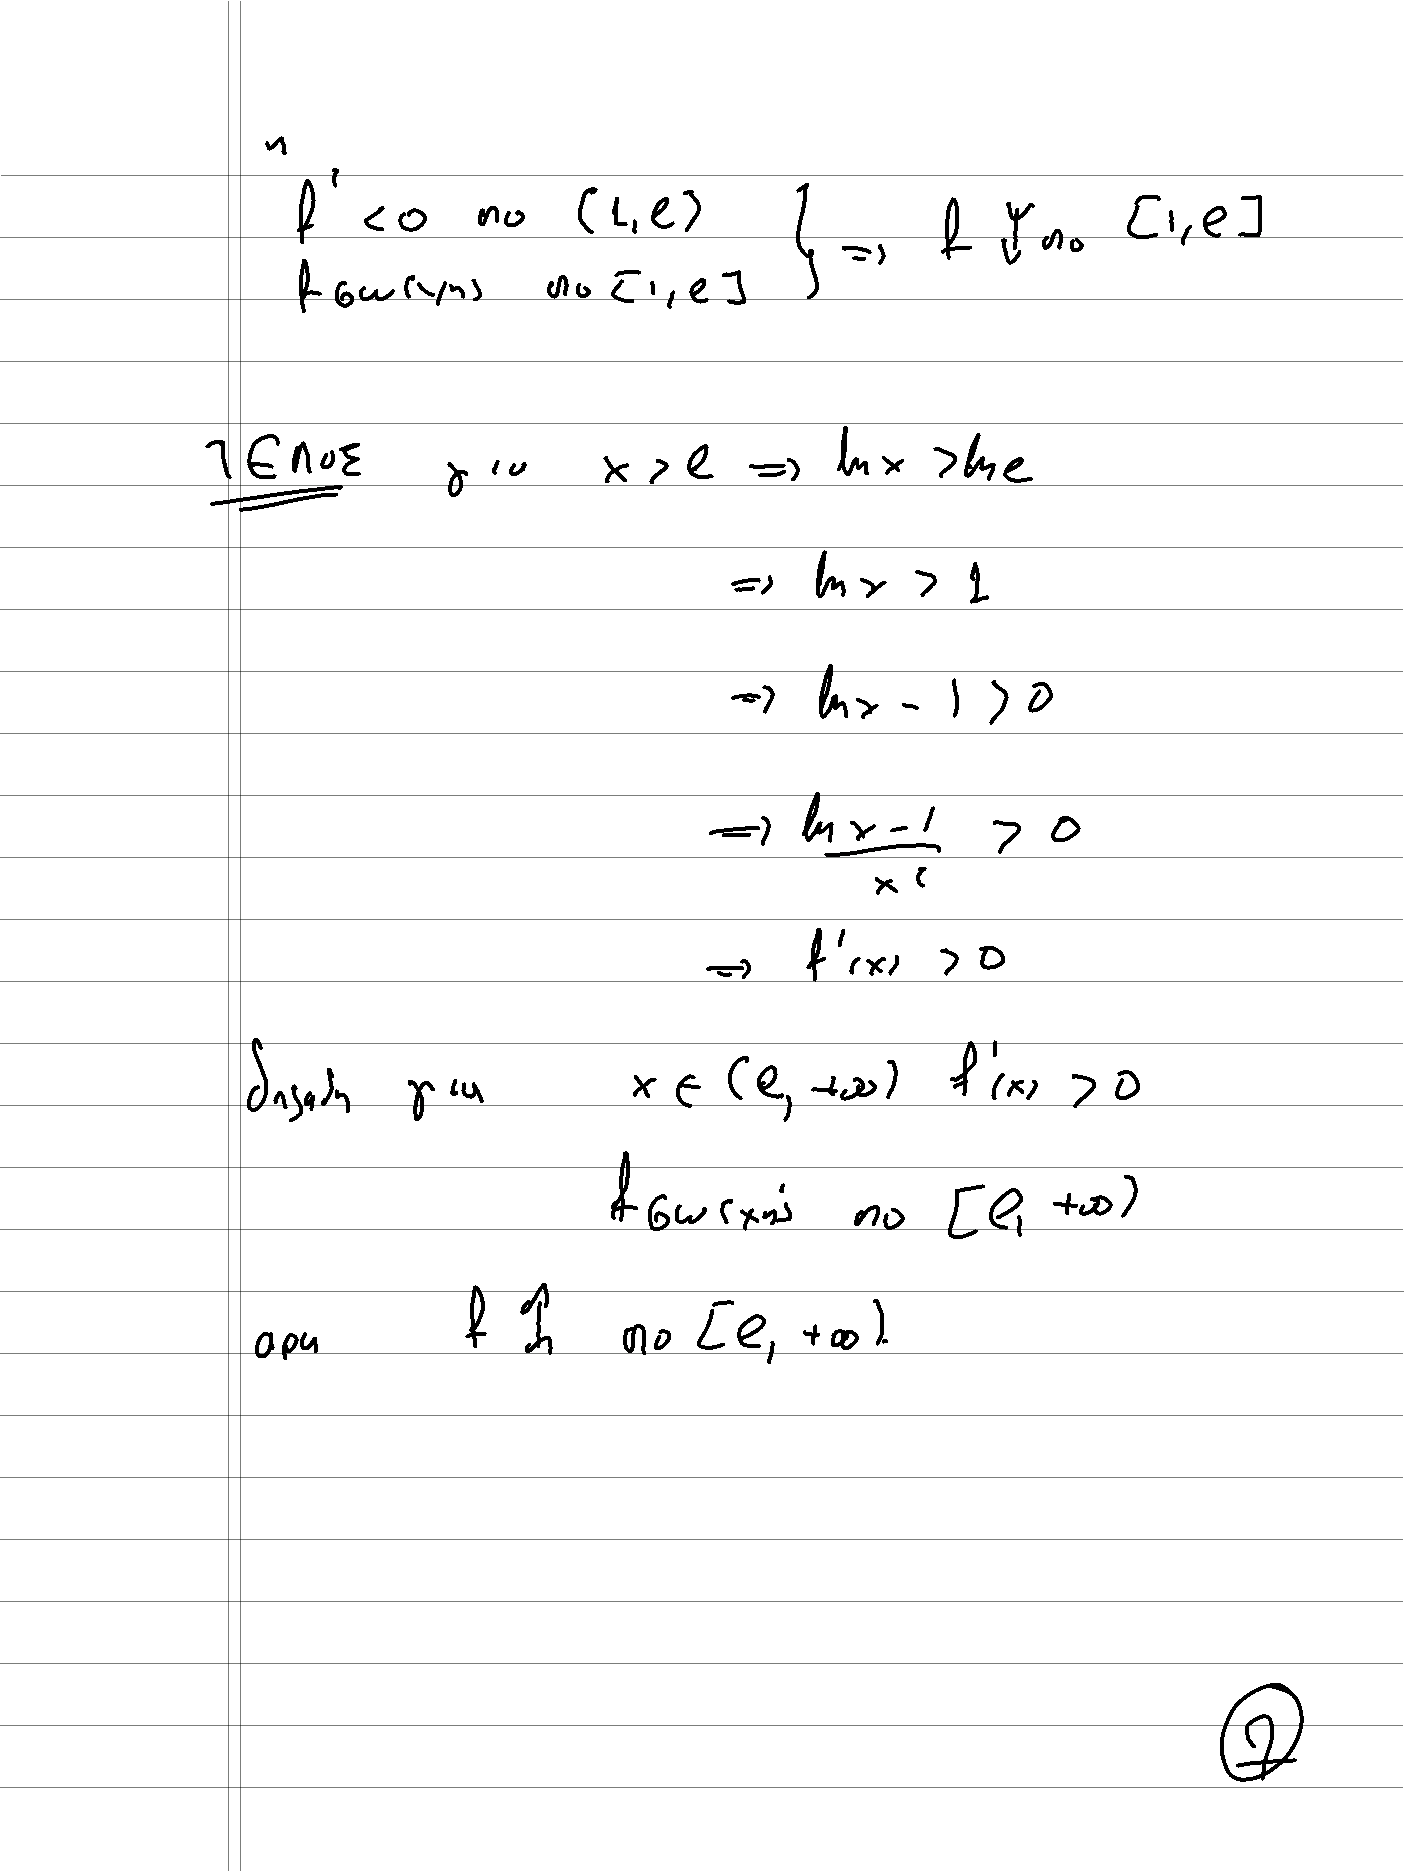 f' < 0 στο (1, e) } => f ↓ στο [1, e]
f συνεχης στο [1, e]
ΤΕΛΟΣ για x > e => ln x > ln e
=> ln x > 1
=> ln x - 1 > 0
=> (ln x - 1) / x² > 0
=> f'(x) > 0
δηλαδη για x ∈ (e, +∞) f'(x) > 0
f συνεχης στο [e, +∞)
αρα f ↑ στο [e, +∞).
7